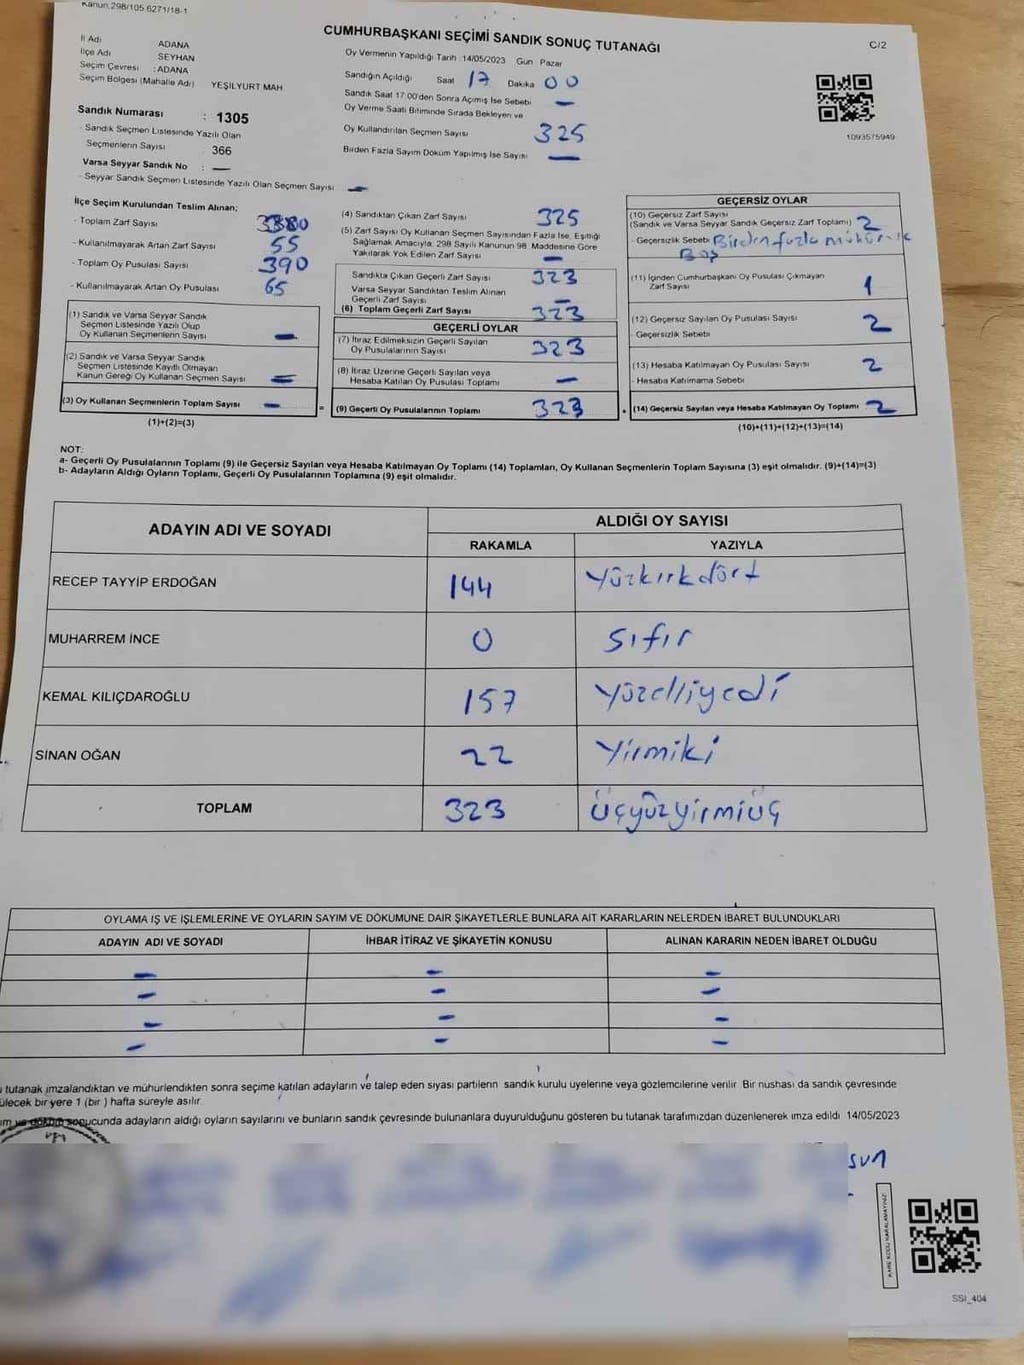 Kanun:298/105.6271/18-1
CUMHURBAŞKANI SEÇİMİ SANDIK SONUÇ TUTANAĞI
C/2
İl Adı ADANA
İlçe Adı SEYHAN
Seçim Çevresi : ADANA
Seçim Bölgesi (Mahalle Adı) YEŞİLYURT MAH
Sandık Numarası : 1305
- Sandık Seçmen Listesinde Yazılı Olan
Seçmenlerin Sayısı 366
Varsa Seyyar Sandık No : —
- Seyyar Sandık Seçmen Listesinde Yazılı Olan Seçmen Sayısı —
Oy Vermenin Yapıldığı Tarih :14/05/2023 Gün Pazar
Sandığın Açıldığı Saat 17 Dakika 00
Sandık Saat 17:00'den Sonra Açımış İse Sebebi —
Oy Verme Saati Bitiminde Sırada Bekleyen ve
Oy Kullandırılan Seçmen Sayısı 325
Birden Fazla Sayım Döküm Yapılmış İse Sayısı —
1093575949
İlçe Seçim Kurulundan Teslim Alınan;
- Toplam Zarf Sayısı
- Kullanılmayarak Artan Zarf Sayısı 55
- Toplam Oy Pusulası Sayısı 390
- Kullanılmayarak Artan Oy Pusulası 65
(1) Sandık ve Varsa Seyyar Sandık
Seçmen Listesinde Yazılı Olup
Oy Kullanan Seçmenlerin Sayısı —
(2) Sandık ve Varsa Seyyar Sandık
Seçmen Listesinde Kayıtlı Olmayan
Kanun Gereği Oy Kullanan Seçmen Sayısı —
(3) Oy Kullanan Seçmenlerin Toplam Sayısı —
(1)+(2)=(3)
(4) Sandıktan Çıkan Zarf Sayısı 325
(5) Zarf Sayısı Oy Kullanan Seçmen Sayısından Fazla İse, Eşitliği
Sağlamak Amacıyla, 298 Sayılı Kanunun 98. Maddesine Göre
Yakılarak Yok Edilen Zarf Sayısı —
Sandıkta Çıkan Geçerli Zarf Sayısı 323
Varsa Seyyar Sandıktan Teslim Alınan
Geçerli Zarf Sayısı —
(6) Toplam Geçerli Zarf Sayısı 323
GEÇERLİ OYLAR
(7) İtiraz Edilmeksizin Geçerli Sayılan
Oy Pusulalarının Sayısı 323
(8) İtiraz Üzerine Geçerli Sayılan veya
Hesaba Katılan Oy Pusulası Toplamı —
= (9) Geçerli Oy Pusulalarının Toplamı 323
GEÇERSİZ OYLAR
(10) Geçersiz Zarf Sayısı
(Sandık ve Varsa Seyyar Sandık Geçersiz Zarf Toplamı) 2
- Geçersizlik Sebebi Birden fazla mühürlük
Boş
(11) İçinden Cumhurbaşkanı Oy Pusulası Çıkmayan
Zarf Sayısı 1
(12) Geçersiz Sayılan Oy Pusulası Sayısı 2
- Geçersizlik Sebebi
(13) Hesaba Katılmayan Oy Pusulası Sayısı 2
- Hesaba Katılmama Sebebi
+ (14) Geçersiz Sayılan veya Hesaba Katılmayan Oy Toplamı 2
(10)+(11)+(12)+(13)=(14)
NOT:
a- Geçerli Oy Pusulalarının Toplamı (9) ile Geçersiz Sayılan veya Hesaba Katılmayan Oy Toplamı (14) Toplamları, Oy Kullanan Seçmenlerin Toplam Sayısına (3) eşit olmalıdır. (9)+(14)=(3)
b- Adayların Aldığı Oyların Toplamı, Geçerli Oy Pusulalarının Toplamına (9) eşit olmalıdır.
ADAYIN ADI VE SOYADI ALDIĞI OY SAYISI
RAKAMLA YAZIYLA
RECEP TAYYİP ERDOĞAN 144 Yüzkırkdört
MUHARREM İNCE 0 Sıfır
KEMAL KILIÇDAROĞLU 157 Yüzelliyedi
SİNAN OĞAN 22 Yirmiki
TOPLAM 323 Üçyüzyirmiüç
OYLAMA İŞ VE İŞLEMLERİNE VE OYLARIN SAYIM VE DÖKÜMÜNE DAİR ŞİKAYETLERLE BUNLARA AİT KARARLARIN NELERDEN İBARET BULUNDUKLARI
ADAYIN ADI VE SOYADI İHBAR İTİRAZ VE ŞİKAYETİN KONUSU ALINAN KARARIN NEDEN İBARET OLDUĞU
— — —
— — —
— — —
— — —
tutanak imzalandıktan ve mühürlendikten sonra seçime katılan adayların ve talep eden siyasi partilerin sandık kurulu üyelerine veya gözlemcilerine verilir. Bir nüshası da sandık çevresinde
ülecek bir yere 1 (bir ) hafta süreyle asılır.
ım ve döküm sonucunda adayların aldığı oyların sayılarını ve bunların sandık çevresinde bulunanlara duyurulduğunu gösteren bu tutanak tarafımızdan düzenlenerek imza edildi 14/05/2023
sun
KARE KODU KARALAMAYINIZ!
SSI_404